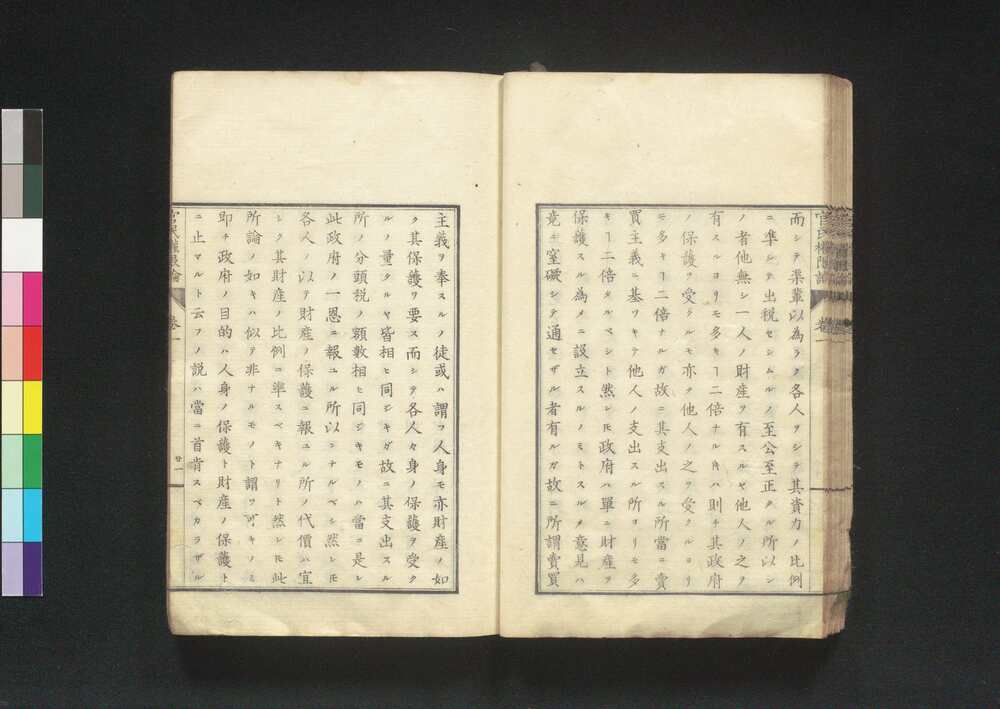 而シテ渠輩以為ラク各人ヲシテ其資力ノ比例
ニ準シテ出税セシムルノ至公至正タル所以ン
ノ者他無シ一人ノ財産ヲ有スルヤ他人ノ之ヲ
有スルヨリモ多キヿ二倍ナル片ハ則チ其政府
ノ保護ヲ受クルモ亦タ他人ノ之ヲ受クルヨリ
モ多キヿ二倍ナルガ故ニ其支出スル所當ニ賣
買主義ニ基ツキテ他人ノ支出スル所ヨリモ多
キヿ二倍タルベシト然シ𪜈政府ハ單ニ財産ヲ
保護スル為メニ設立スルノミトスルノ意見ハ
竟ニ窒礙シテ通セザル者有ルガ故ニ所謂賣買
主義ヲ奉スルノ徒或ハ謂フ人身モ亦財産ノ如
ク其保護ヲ要ス而シテ各人々身ノ保護ヲ受ク
ルノ量タルヤ皆相ヒ同シキガ故ニ其支出スル
所ノ分頭税ノ額數相ヒ同ジキモノハ當ニ是レ
此政府ノ一恩ニ報ユル所以ンナルベシ然シ𪜈
各人ノ以テ財産ノ保護ニ報ユル所ノ代價ハ宜
シク其財産ノ比例ニ準スベキナリト然シ𪜈此
所論ノ如キハ似テ非ナルモノト謂フ可キノミ
即チ政府ノ目的ハ人身ノ保護ト財産ノ保護ト
ニ止マルト云フノ説ハ當ニ首肯スベカラザル
官民權限論
卷一
廿一